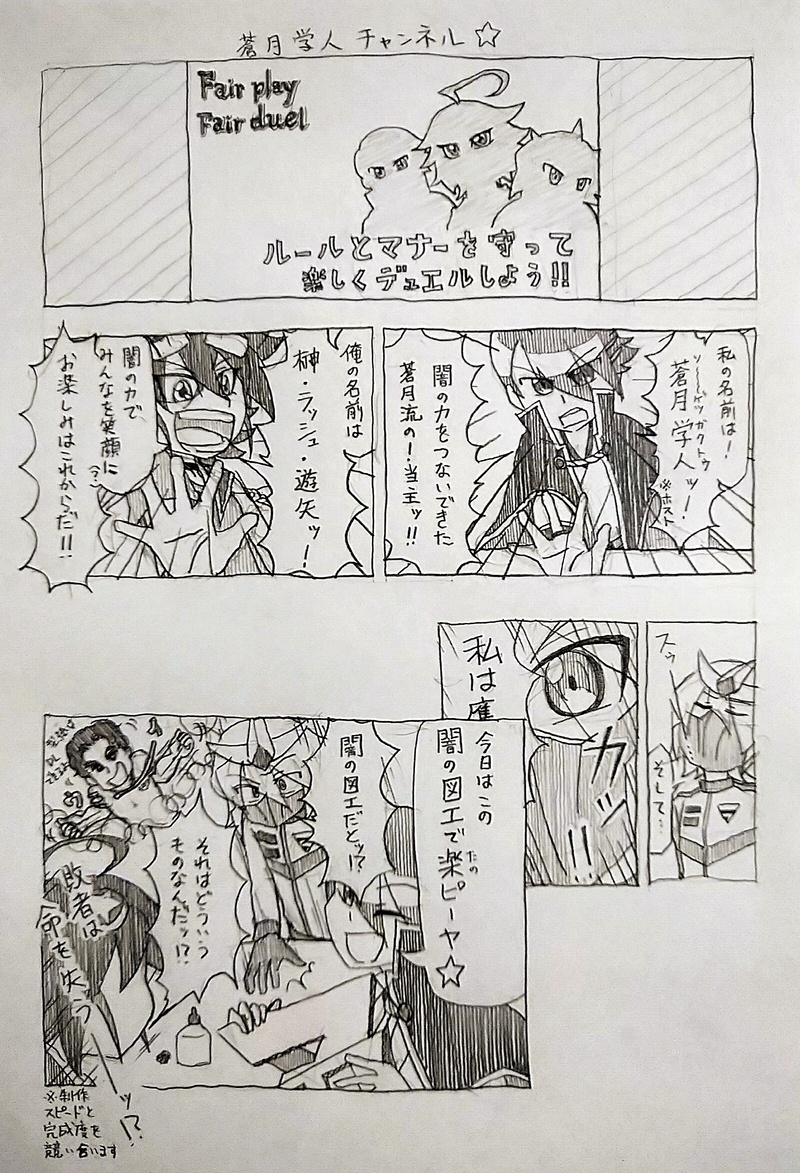 蒼月学人チャンネル☆
Fair play
Fair duel
ルールとマナーを守って
楽しくデュエルしよう!!
私の名前は！
ソーゲツガクトゥ
蒼月学人ッ！
※ホスト
闇の力をつないできた
蒼月流の！当主ッ!!
俺の名前は
榊・ラッシュ・遊矢ッ！
闇の力で
みんなを笑顔に
(?)
お楽しみはこれからだ!!
スゥ
そして…
カッ!!
私は鷹
今日はこの
闇の図工で楽ピーヤ☆
たの
闇の図工だとッ!?
それはどういう
ものなんだッ!?
敗者は
命を失うーッ!?
※制作
スピードと
完成度を
競い合います